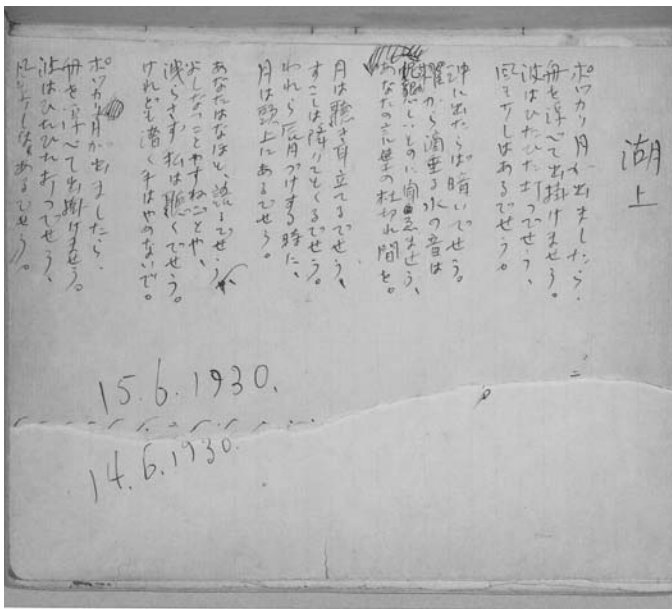 湖上
ポツカリ月が出ましたら、
舟を浮べて出掛けませう。
波はひたひた打つでせう、
風も少しはあるでせう。
沖に出たらば暗いでせう、
櫂から滴垂る水の音は
昵懇しいものに聞こえませう、
あなたの言葉の杜切れ間を。
月は聴き耳立てるでせう、
すこしは降りても来るでせう、
われら接唇する時に、
月は頭上にあるでせう。
あなたはなほも、語るでせう、
よしないことやすねごとや、
洩らさず私は聴くでせう、
けれども漕ぐ手はやめないで。
ポツカリ月が出ましたら、
舟を浮べて出掛けませう、
波はひたひた打つでせう、
風も少しはあるでせう。
15.6.1930.
14.6.1930.